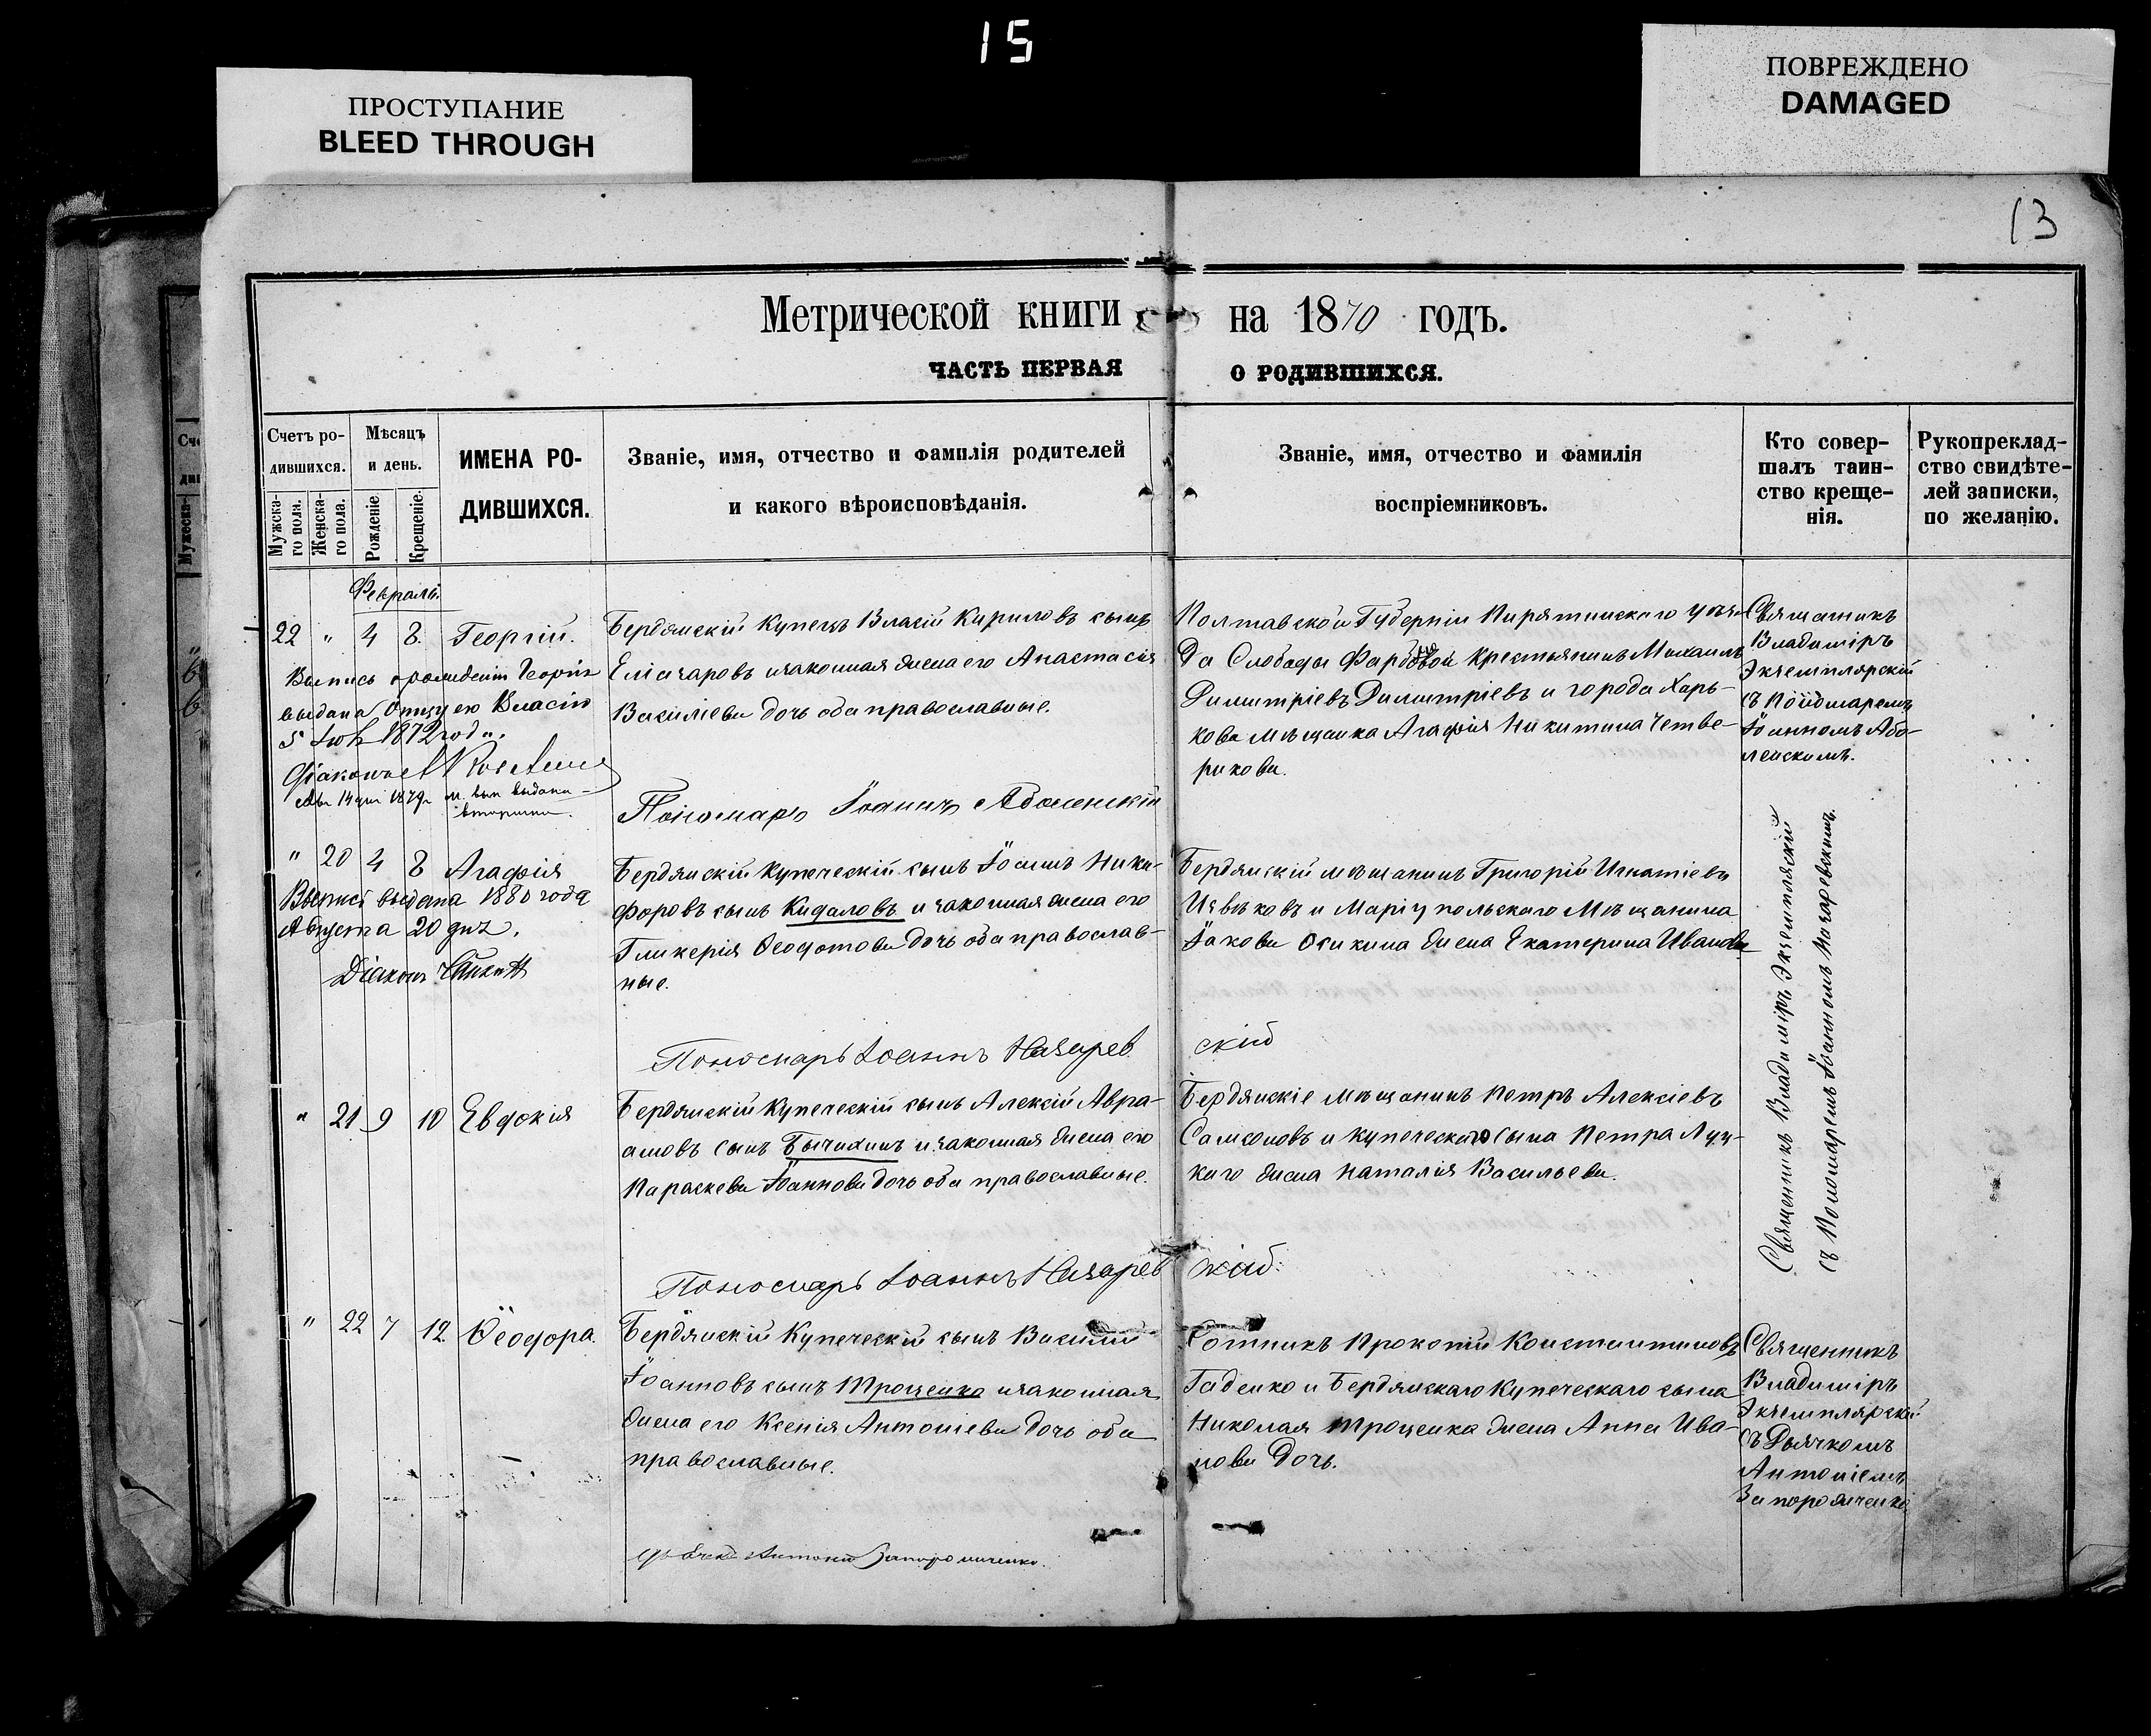 15
ПРОСТУПАНИЕ
BLEED THROUGH
ПОВРЕЖДЕНО
DAMAGED
13
Метрической книги на 1870 годъ.
ЧАСТЬ ПЕРВАЯ О РОДИВШИХСЯ.
Счетъ ро-
дившихся.
Мужска-
го пола.
Женска-
го пола.
Мѣсяцъ
и день.
Рожденіе
Крещеніе.
ИМЕНА РО-
ДИВШИХСЯ.
Званіе, имя, отчество и фамилія родителей
и какого вѣроисповѣданія.
Званіе, имя, отчество и фамилія
воспріемниковъ.
Кто совер-
шалъ таин-
ство креще-
нія.
Рукопреклад-
ство свидѣте-
лей записки,
по желанію.
Февраль
22 " 4 8. Георгій.
Выпись о рождении Георгія
выдана Отцу его Власію
5 1872 года.
Діаконъ
14 1879 м. вып выдана
вторично.
Бердянскій Купецъ Власій Кириловъ сынъ
Елисаровъ и законная жена его Анастасія
Василіева дочь оба православные.
Пономарь Іоаннъ
Полтавской Губерніи Пирятинскаго уѣз-
да Слободы крестьянинъ Михаилъ
Димитріевъ Димитріевъ и города Харь-
кова мѣщанка Агафія Никитина Четве-
рикова.
Священникъ
Владиміръ
Экземплярскій
съ Пономаремъ
Іоанномъ Або-
ленскомъ.
" 20 4 8 Агафія
Выпись выдана 1880 года
Августа 20 дня.
Діаконъ
Бердянскій купеческій сынъ Іоаннъ Ники-
форовъ сынъ Кидаловъ и законная жена его
Гликерія Ѳеодотова дочь оба православ-
ные.
Пономарь Іоаннъ Назаревскій
Бердянскій мѣщанинъ Григорій Игнатіевъ
Извѣковъ и Маріупольскаго Мѣщанина
Іакова Осикина жена Екатерина Иванова
Священникъ Владиміръ Экземплярскій
съ Пономаремъ Іоанномъ Назаревскимъ.
" 21 9 10 Евдокія
Бердянскій Купеческій сынъ Алексій Авра-
амовъ сынъ Бычихинъ и законная жена его
Параскева Іоаннова дочь оба православные.
Пономарь Іоаннъ Назаревскій.
Бердянскіе мѣщанинъ Петръ Алексіевъ
Самсоновъ и купеческаго сына Петра Луц-
каго жена Наталія Васильева.
" 22 7 12 Ѳеодора.
Бердянскій Купеческій сынъ Василій
Іоанновъ сынъ Троценко и законная
жена его Ксенія Антоніева дочь оба
православные.
Антоній Запорожченко.
Сотникъ Прокопій Константиновъ
Гаденко и Бердянскаго Купеческаго сына
Николая Троценка жена Анна Ива-
нова дочь.
Священникъ
Владиміръ
Экземплярскій
съ Дьячкомъ
Антоніемъ
Запорожченко